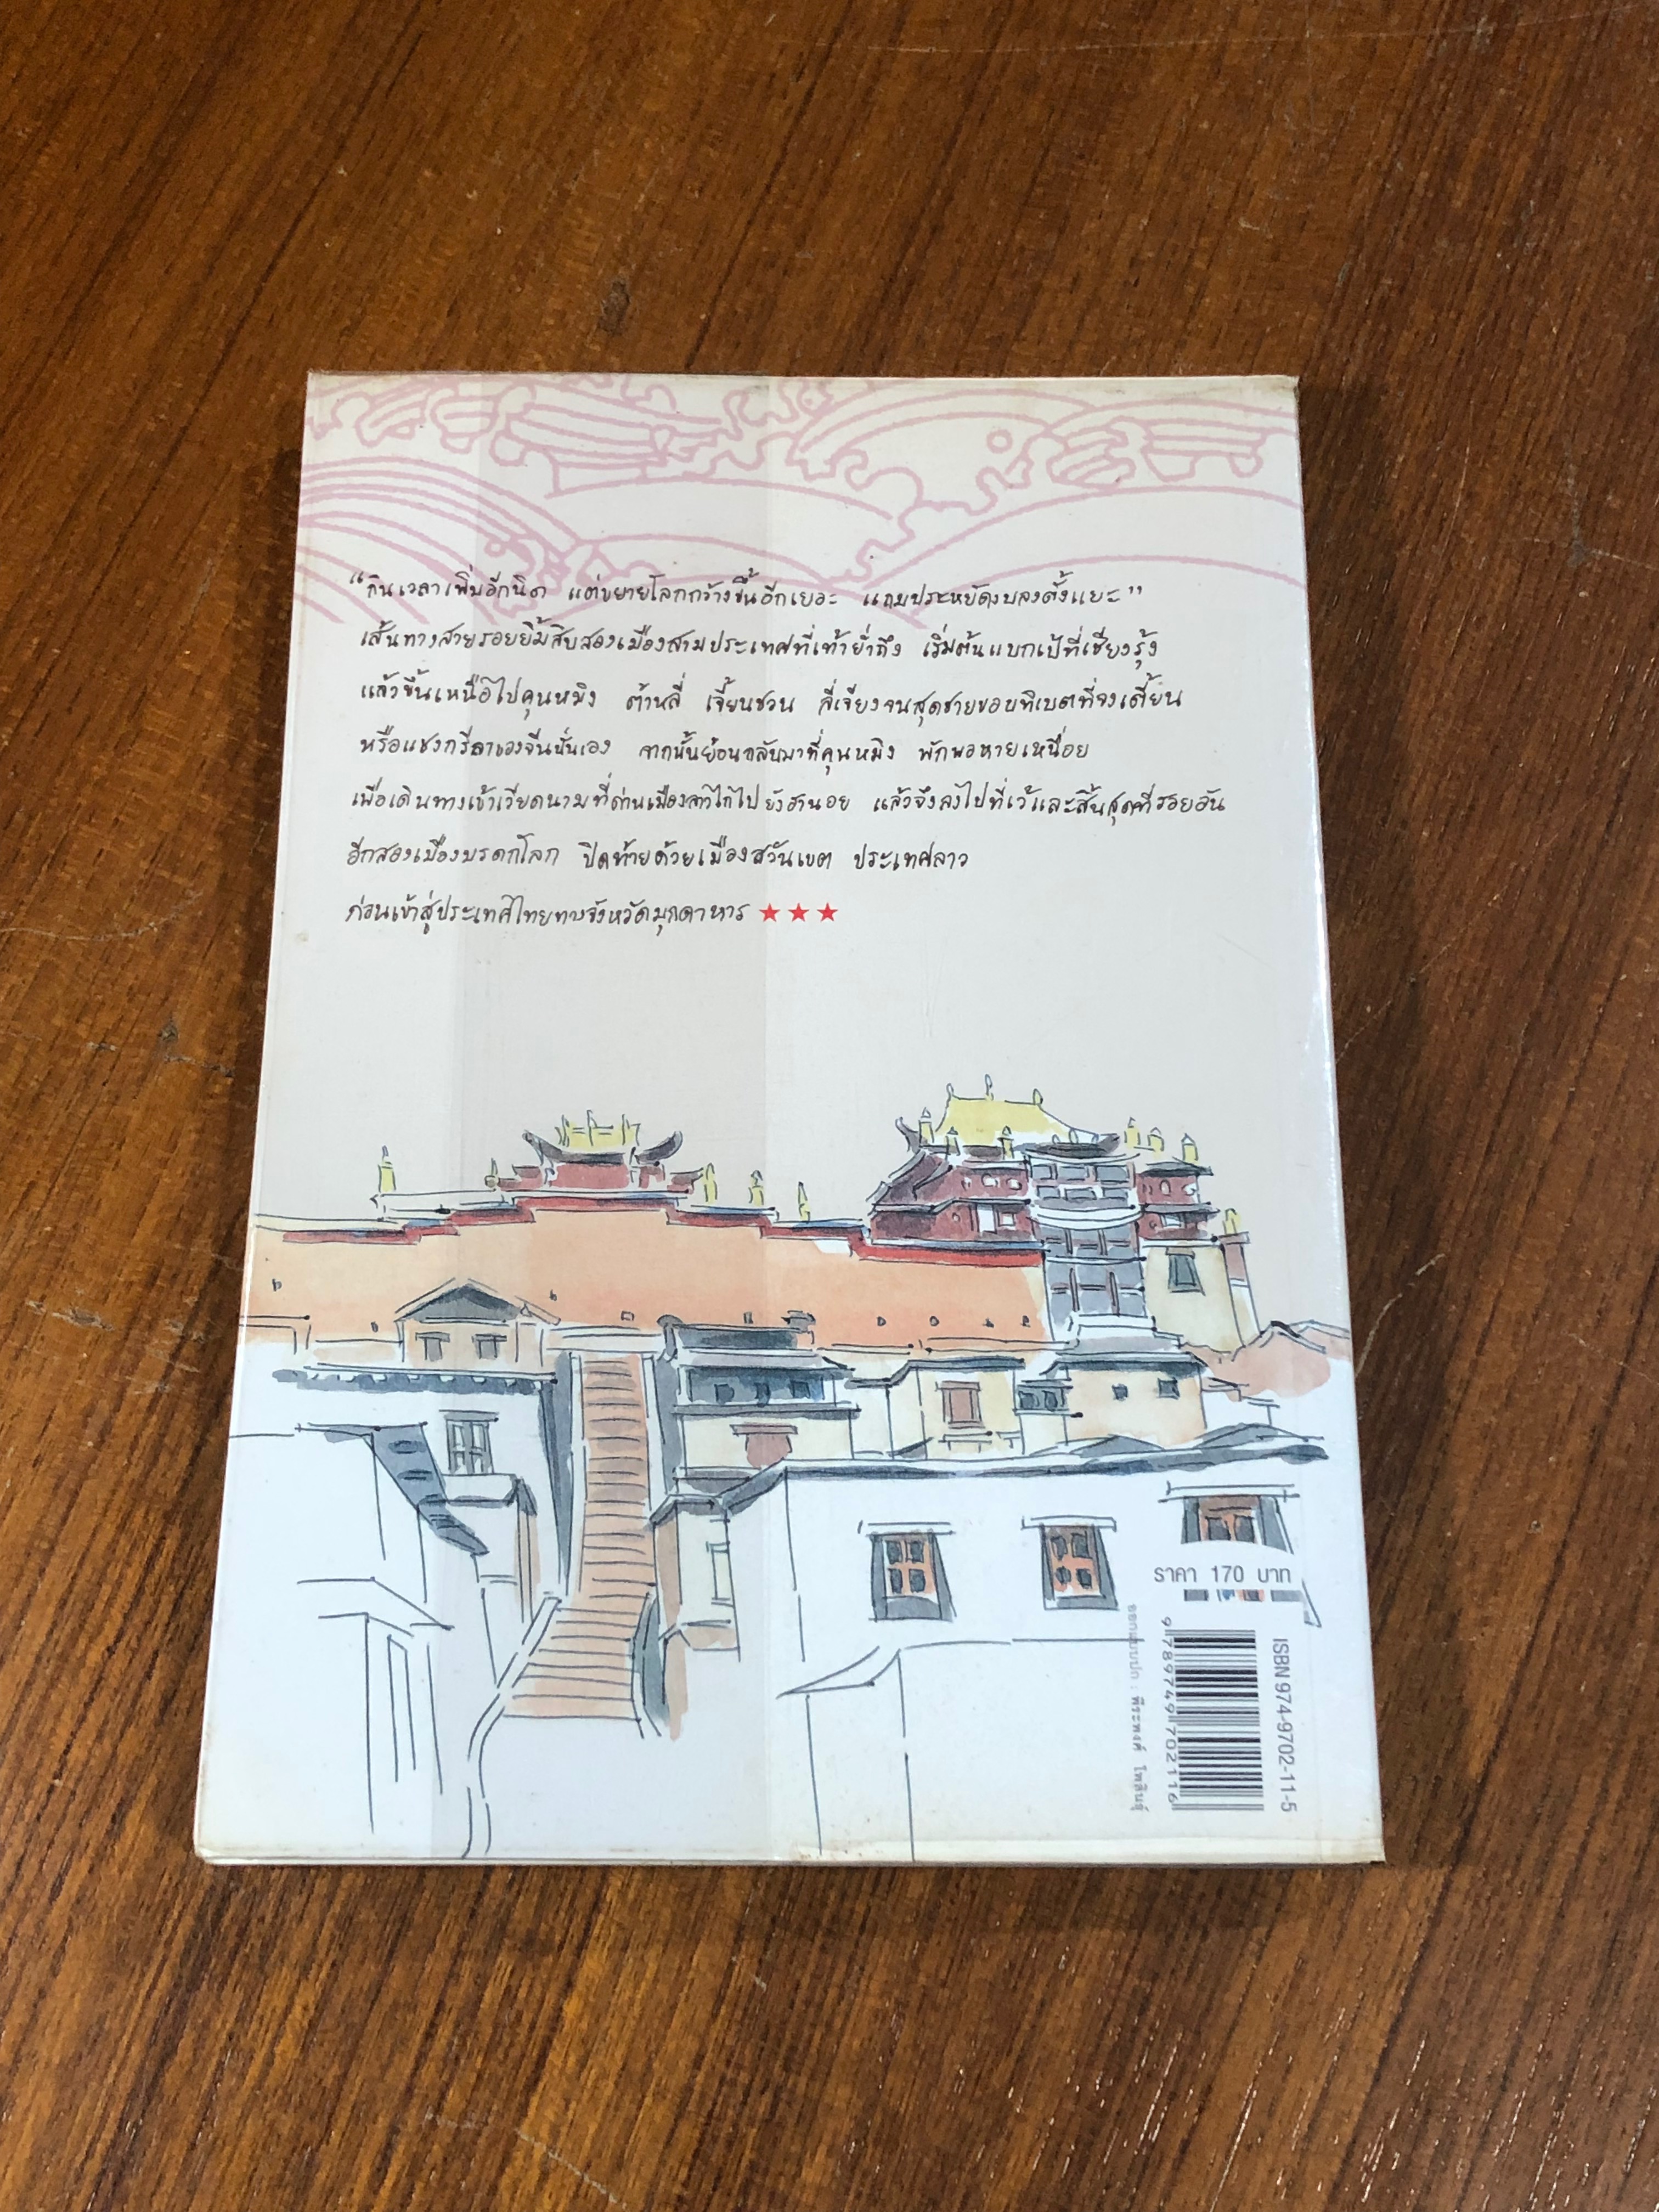 “กินเวลาเพิ่มอีกนิด แต่ขยายโลกกว้างขึ้นอีกเยอะ แถมประหยัดงบลงตั้งแยะ”
เส้นทางสายรอยยิ้มสิบสองเมืองสามประเทศที่เท้าย่ำถึง เริ่มต้นแบกเป้ที่เชียงรุ้ง
แล้วขึ้นเหนือไปคุนหมิง ต้าหลี่ เจี้ยนชวน ลี่เจียงจนสุดชายขอบทิเบตที่จงเตี้ยน
หรือแชงกรีลาของจีนนั่นเอง จากนั้นย้อนกลับมาที่คุนหมิง พักพอหายเหนื่อย
เพื่อเดินทางเข้าเวียดนามที่ด่านเมืองลาวไกไปยังฮานอย แล้วจึงลงไปที่เว้และสิ้นสุดที่ฮอยอัน
อีกสองเมืองมรดกโลก ปิดท้ายด้วยเมืองสวันเขต ประเทศลาว
ก่อนเข้าสู่ประเทศไทยทางจังหวัดมุกดาหาร ★★★
ราคา 170 บาท
ISBN 974-9702-11-5
9 789749 702116
ออกแบบปก : พีระพงศ์ โพสินธุ์